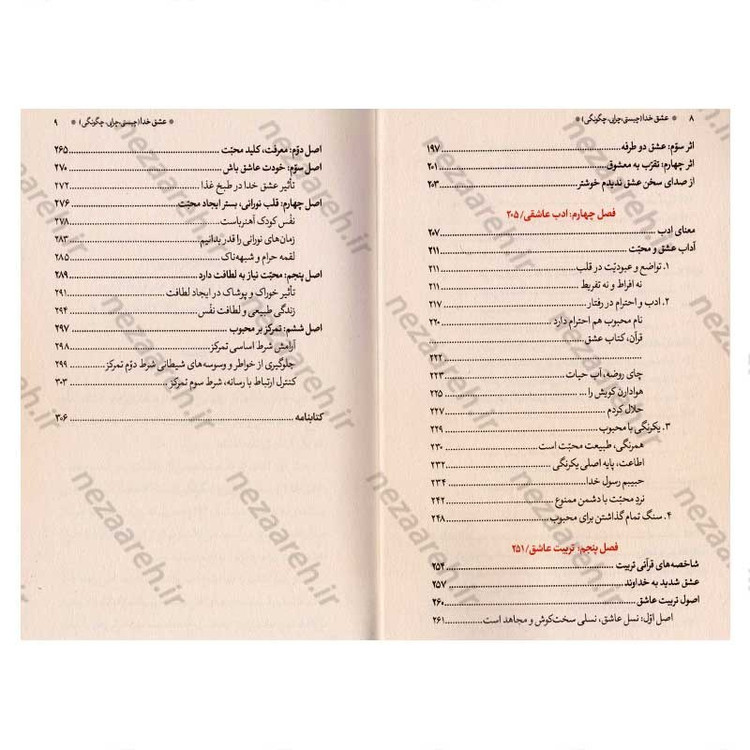 ۸ * عشق خدا (چیستی، چرایی، چگونگی) *
اثر سوّم: عشق دو طرفه ۱۹۷
اثر چهارم: تقرّب به معشوق ۲۰۱
از صدای سخن عشق ندیدم خوشتر ۲۰۳
فصل چهارم: ادب عاشقی/ ۲۰۵
معنای ادب ۲۰۷
آداب عشق و محبّت ۲۱۱
۱. تواضع و عبودیّت در قلب ۲۱۱
نه افراط و نه تفریط ۲۱۱
۲. ادب و احترام در رفتار ۲۱۷
نام محبوب هم احترام دارد ۲۲۰
قرآن، کتاب عشق
۲۲۲
چای روضه، آب حیات ۲۲۳
هوادارن کویش را ... ۲۲۵
حلال کردم ۲۲۷
۳. یکرنگی با محبوب ۲۲۹
همرنگی، طبیعت محبّت است ۲۳۰
اطاعت، پایه اصلی یکرنگی ۲۳۲
حبیبم رسول خدا ۲۳۴
نردِ محبّت با دشمن ممنوع ۲۴۲
۴. سنگ تمام گذاشتن برای محبوب ۲۴۸
فصل پنجم: تربیت عاشق/ ۲۵۱
شاخصه‌های قرآنی تربیت ۲۵۴
عشق شدید به خداوند ۲۵۷
اصول تربیت عاشق ۲۶۰
اصل اوّل: نسل عاشق، نسلی سخت‌کوش و مجاهد است ۲۶۱
* عشق خدا (چیستی، چرایی، چگونگی) * ۹
اصل دوّم: معرفت، کلید محبّت ۲۶۵
اصل سوّم: خودت عاشق باش ۲۷۰
تأثیر عشق خدا در طبخ غذا ۲۷۲
اصل چهارم: قلب نورانی، بستر ایجاد محبّت ۲۷۶
نفْس کودک آهنرباست ۲۷۸
زمان‌های نورانی را قدر بدانیم ۲۸۳
لقمه حرام و شبهه‌ناک ۲۸۵
اصل پنجم: محبّت نیاز به لطافت دارد ۲۸۹
تأثیر خوراک و پوشاک در ایجاد لطافت ۲۹۱
زندگی طبیعی و لطافت نفْس ۲۹۴
اصل ششم: تمرکز بر محبوب ۲۹۷
آرامش شرط اساسی تمرکز ۲۹۸
جلوگیری از خواطر و وسوسه‌های شیطانی شرط دوّم تمرکز ۲۹۹
کنترل ارتباط با رسانه، شرط سوم تمرکز ۳۰۳
کتابنامه ۳۰۶
nezaareh.ir